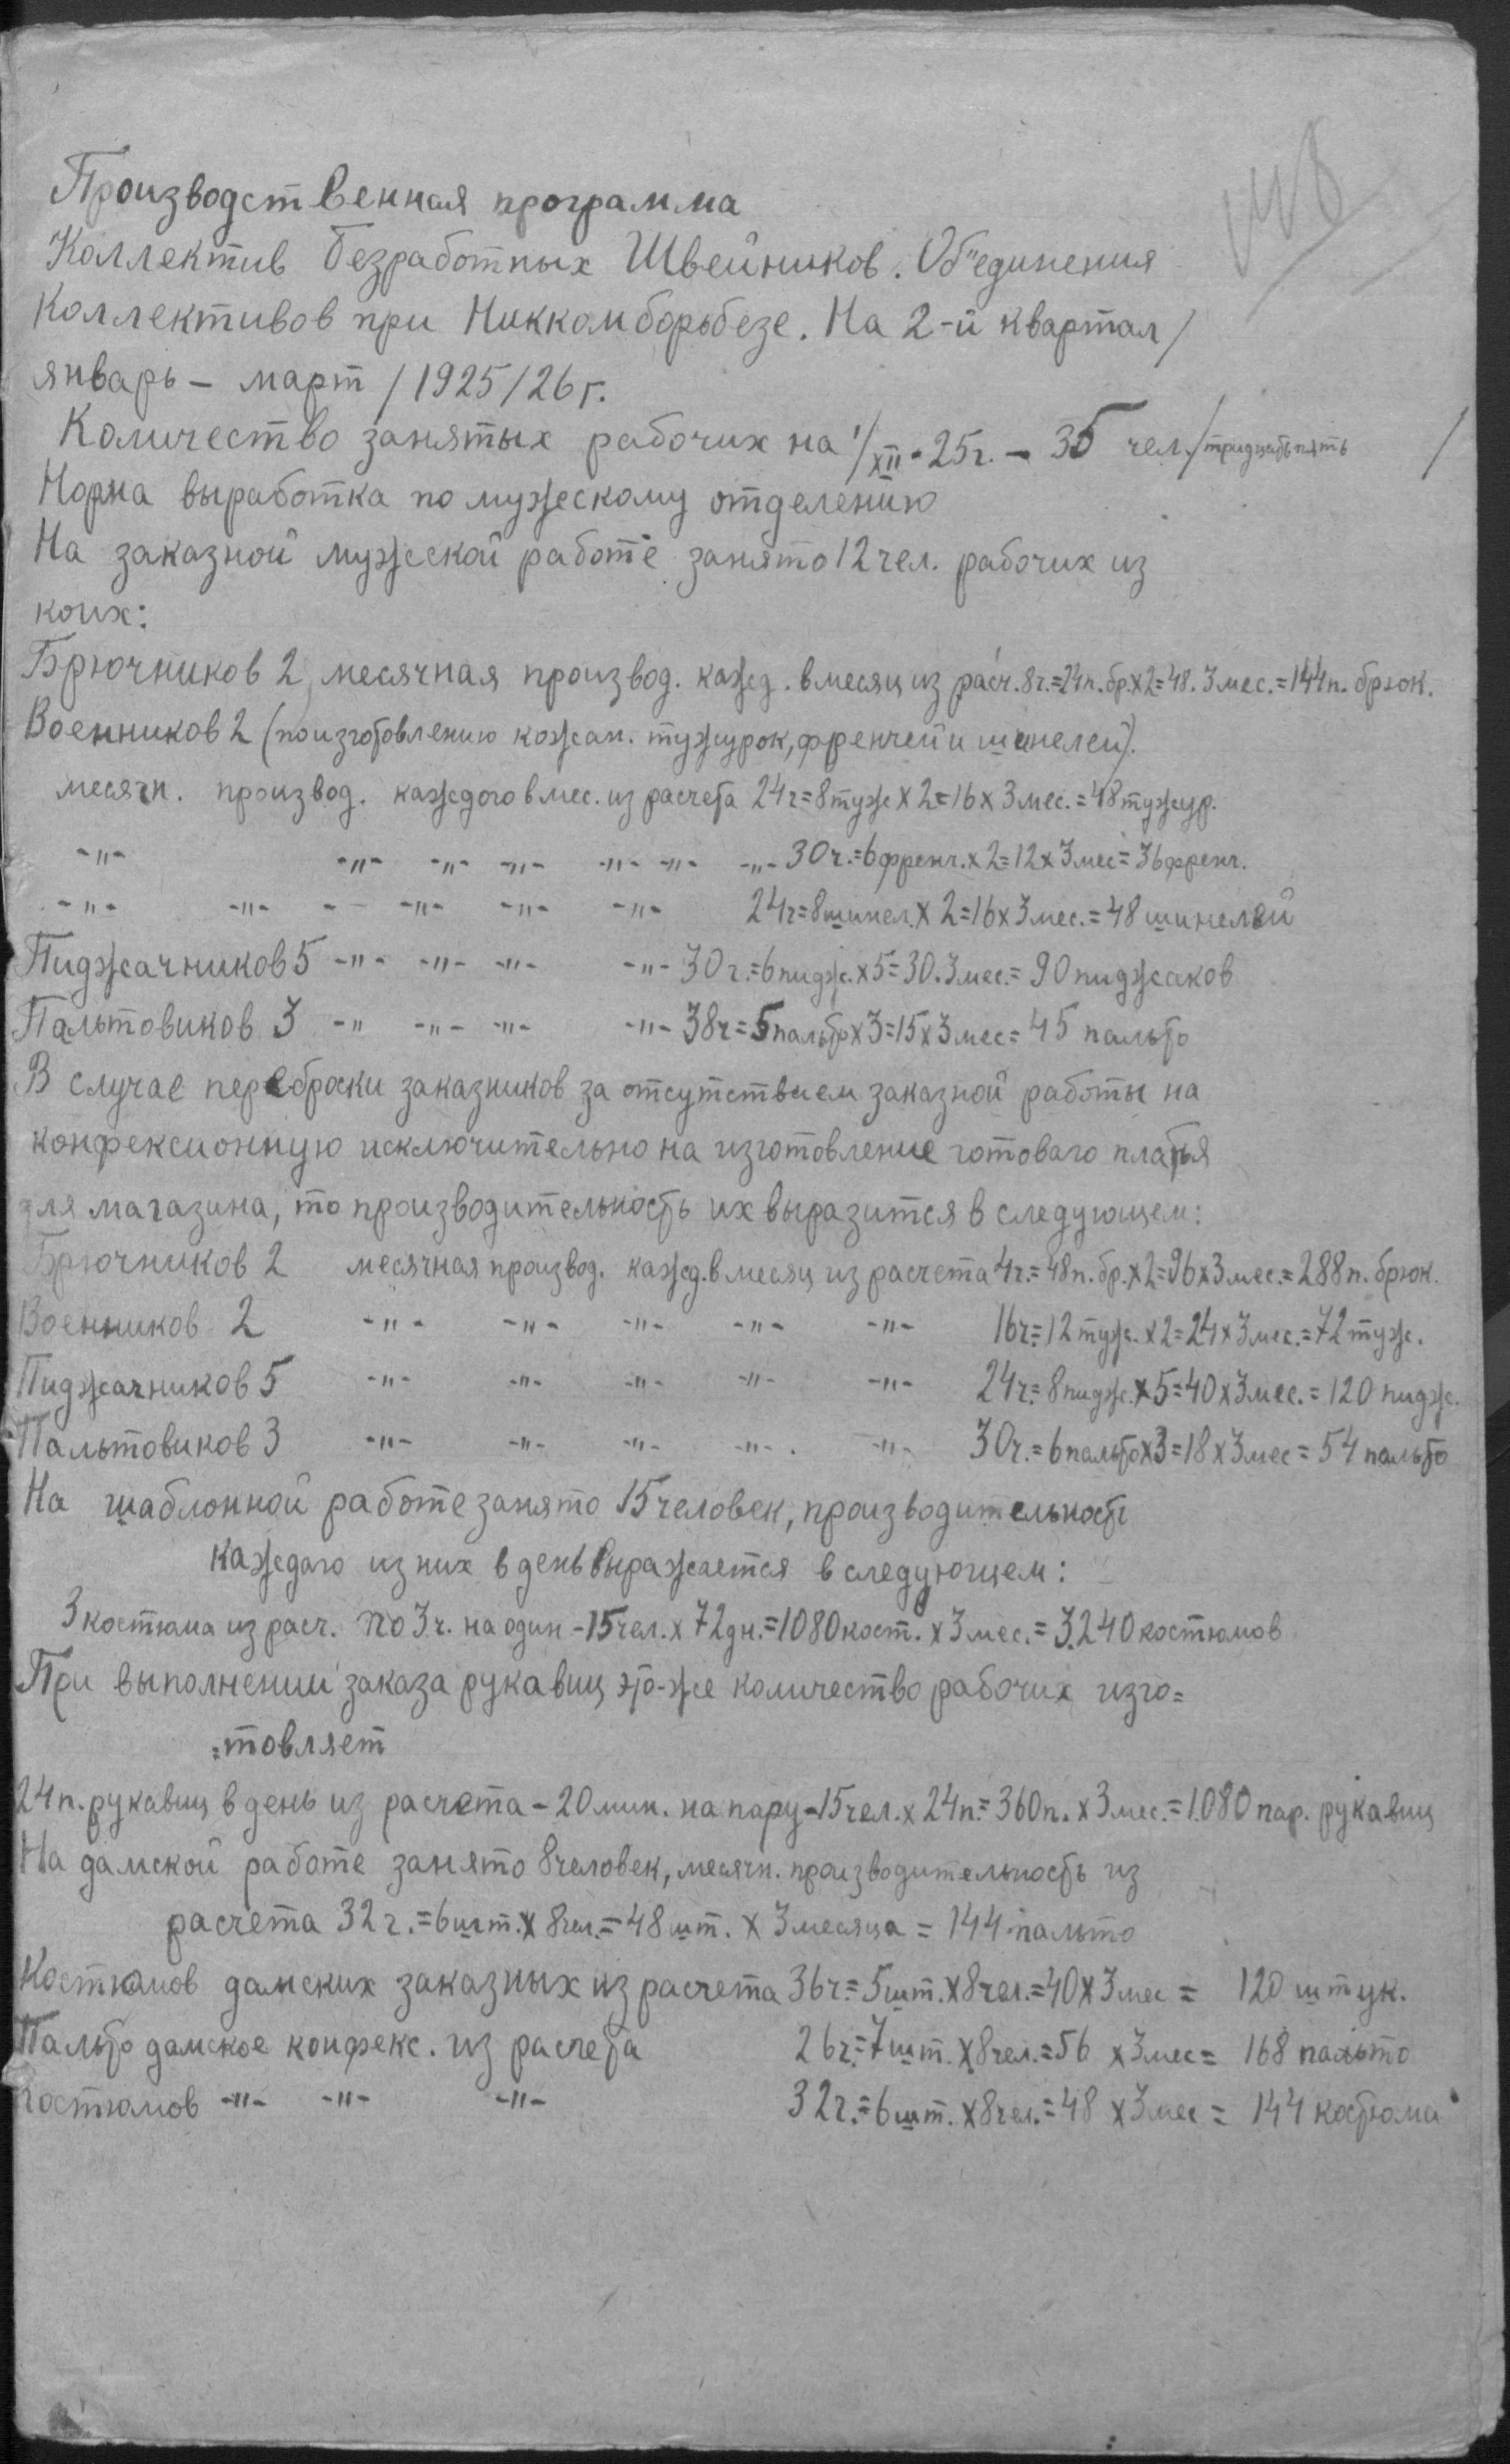 Производственная программа
Коллектив безработных Швейников. Об"единения
Коллективов при Никкомборьбезе. На 2-й квартал /
январь - март / 1925/26 г.
Количество занятых рабочих на 1/XII-25г. - 35 чел./тридцать пять /
Норма выработка по мужескому отделению
На заказной мужеской работе занято 12 чел. рабочих из
коих:
Брючников 2, месячная производ. кажд. в месяц из расч. 8ч.=24п.бр.х2=48.3мес.=144п. брюк.
Военников 2 (по изготовлению кожан. тужурок, френчей и шинелей).
месячн. производ. каждого в мес. из расчета 24ч=8туж х 2=16 х 3мес.=48тужур.
-"- -"- -"- -"- -"- -"- -"- 30ч.=6френч.х2=12х3мес=36френч.
-"- -"- - -"- -"- -"- 24ч=8шинел.х 2=16х3мес.=48 шинелей
Пиджачников 5 -"- -"- -"- -"- 30ч.=6пидж.х5=30.3мес.=90 пиджаков
Пальтовиков 3 -" -"- -"- -"- 38ч=5пальтох3=15х3мес=45 пальто
В случае переброски заказников за отсутствием заказной работы на
конфексионную исключительно на изготовление готоваго платья
для магазина, то производительность их выразится в следующем:
Брючников 2 месячная производ. кажд. в месяц из расчета 4ч.=48п.бр.х2=96х3мес.=288п.брюк.
Военников 2 -"- -"- -"- -"- -"- 16ч.=12туж.х2=24х3мес.=72туж.
Пиджачников 5 -"- -"- -"- -"- -"- 24ч.=8пидж.х5=40х3мес.=120 пидж.
Пальтовиков 3 -"- -"- -"- -"-. -"- 30ч.=6пальтох3=18х3мес=54 пальто
На шаблонной работе занято 15 человек, производительность
каждаго из них в день выражается в следующем:
3 костюма из расч. по 3ч. на один - 15чел.х 72дн.=1080кост.х3мес.=3.240костюмов
При выполнении заказа рукавиц это-же количество рабочих изго=
=товляет
24п.рукавиц в день из расчета - 20мин. на пару-15чел.х 24п.=360п.х3мес.=1.080 пар. рукавиц
На дамской работе занято 8человек, месячн. производительность из
расчета 32ч.=6шт.х 8чел.=48шт. х 3месяца = 144 пальто
Костюмов дамских заказных из расчета 36ч.=5шт.х8чел.=40х3мес = 120 штук.
Пальто дамское конфекс. из расчета 26ч.=7шт.х8чел.=56 х3мес= 168 пальто
Костюмов -"- -"- -"- 32ч.=6шт.х8чел.=48 х3мес = 144 костюма